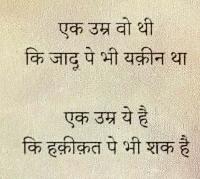 एक उम्र वो थी
कि जादू पे भी यक़ीन था
एक उम्र ये है
कि हक़ीक़त पे भी शक है